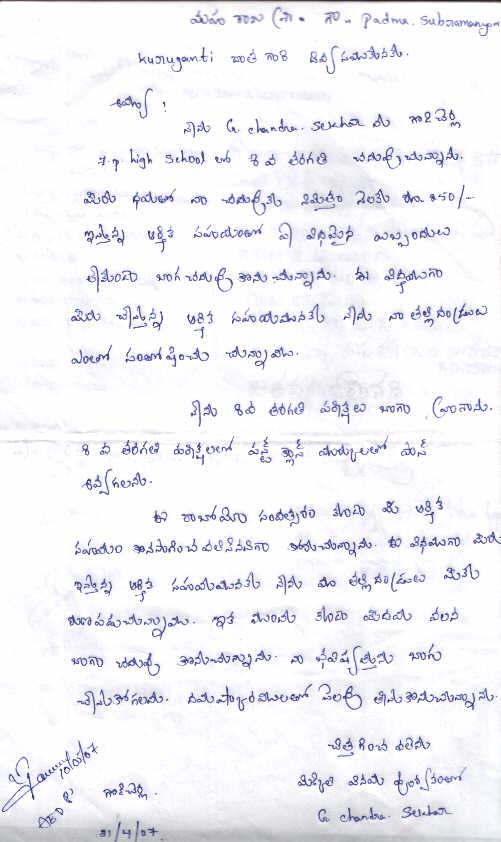 మహా రాజ శ్రీ గా. గా. Padma. Subramanyam
Kuruganti వారి దివ్య సముఖమునకు.
ఆర్యా!
నేను G. chandra. Sekhar ను గూటి
Z.p high School లో 8 వ తరగతి చదువుచున్నాను.
మీరు దయతో నా చదువుకై నిమిత్తం నెలకు రూ. 250/-
ఇస్తున్న ఆర్థిక సహాయంతో ఏ విధమైన ఇబ్బందులు
లేకుండా బాగ చదువుకొనుచున్నాను. ఈ విధముగా
మీరు చేస్తున్న ఆర్థిక సహాయమునకు నేను నా తల్లిదండ్రులు
ఎంతో సంతోషించు చున్నాము.
నేను 8 వ తరగతి పరీక్షలు బాగా వ్రాశాను.
8 వ తరగతి పరీక్షలలో ఫస్ట్ క్లాస్ మార్కులతో పాస్
అవ్వగలను.
ఈ రాబోయే సంవత్సరం కూడా మీ ఆర్థిక
సహాయం కొనసాగించవలసినదిగా కోరుచున్నాను. ఈ విధముగా మీరు
ఇస్తున్న ఆర్థిక సహాయమునకు నేను మా తల్లిదండ్రులు మీకు
ఋణపడుచున్నాము. ఇక ముందు కూడా మీ దయ వలన
బాగా చదువు కొనుచున్నాను. నా భవిష్యత్తును బాగు
చేసుకోగలను. నమస్కారములతో సెలవు తీసుకొనుచున్నాను.
చిత్తగించవలెను
మిక్కిలి వినయ పూర్వకంతో
G. chandra. Sekhar
31/4/07